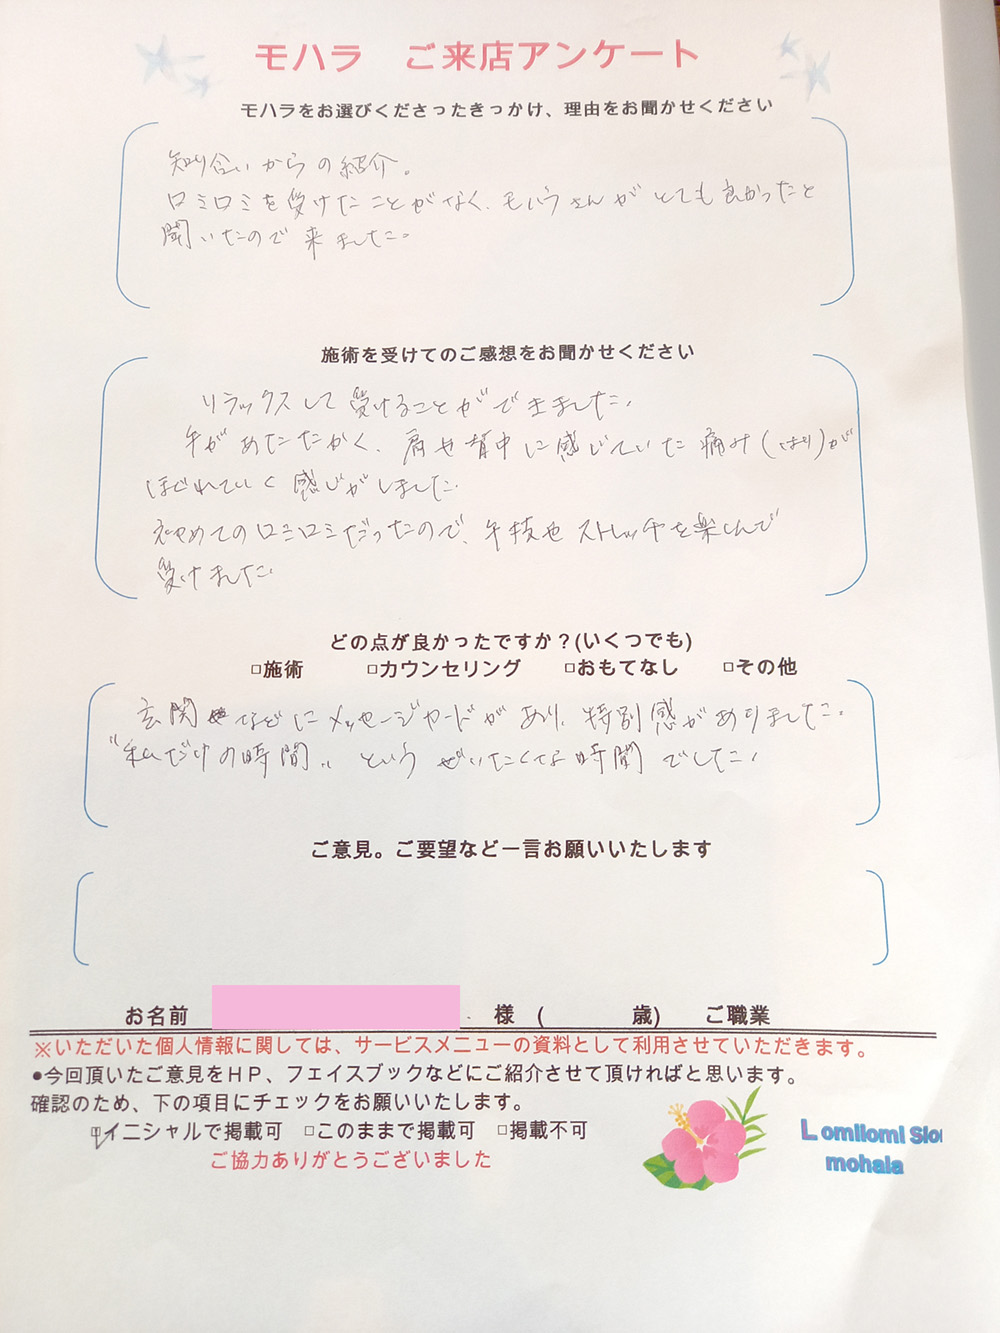 モハラ ご来店アンケート
モハラをお選びくださったきっかけ、理由をお聞かせください
知り合いからの紹介。
ロミロミを受けたことがなく、モハラさんがとても良かったと
聞いたので来ました。
施術を受けてのご感想をお聞かせください
リラックスして受けることができました。
手があたたかく、肩や背中に感じていた痛み(はり)が
ほぐれていく感じがしました。
初めてのロミロミだったので、手技やストレッチを楽しんで
受けました。
どの点が良かったですか?(いくつでも)
□施術 □カウンセリング □おもてなし □その他
玄関などにメッセージカードがあり、特別感がありました。
"私だけの時間"というぜいたくな時間でした。
ご意見。ご要望など一言お願いいたします
お名前 様 ( 歳) ご職業
※いただいた個人情報に関しては、サービスメニューの資料として利用させていただきます。
●今回頂いたご意見をHP、フェイスブックなどにご紹介させて頂ければと思います。
確認のため、下の項目にチェックをお願いいたします。
☑イニシャルで掲載可 □このままで掲載可 □掲載不可
ご協力ありがとうございました
Lomilomi Slo
mohala